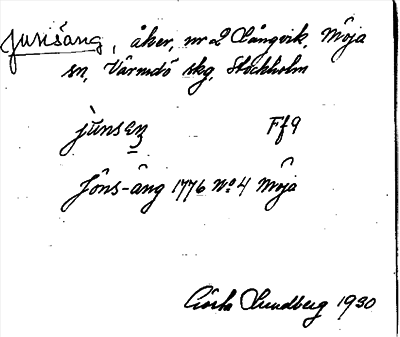 Jusisång, åker, nr 2 Långvik, Möja
sn, Värmdö skg, Stockholm
jùnseŋ Ff9
Jöns-äng 1776 No 4 Möja
Gösta Sundberg 1930